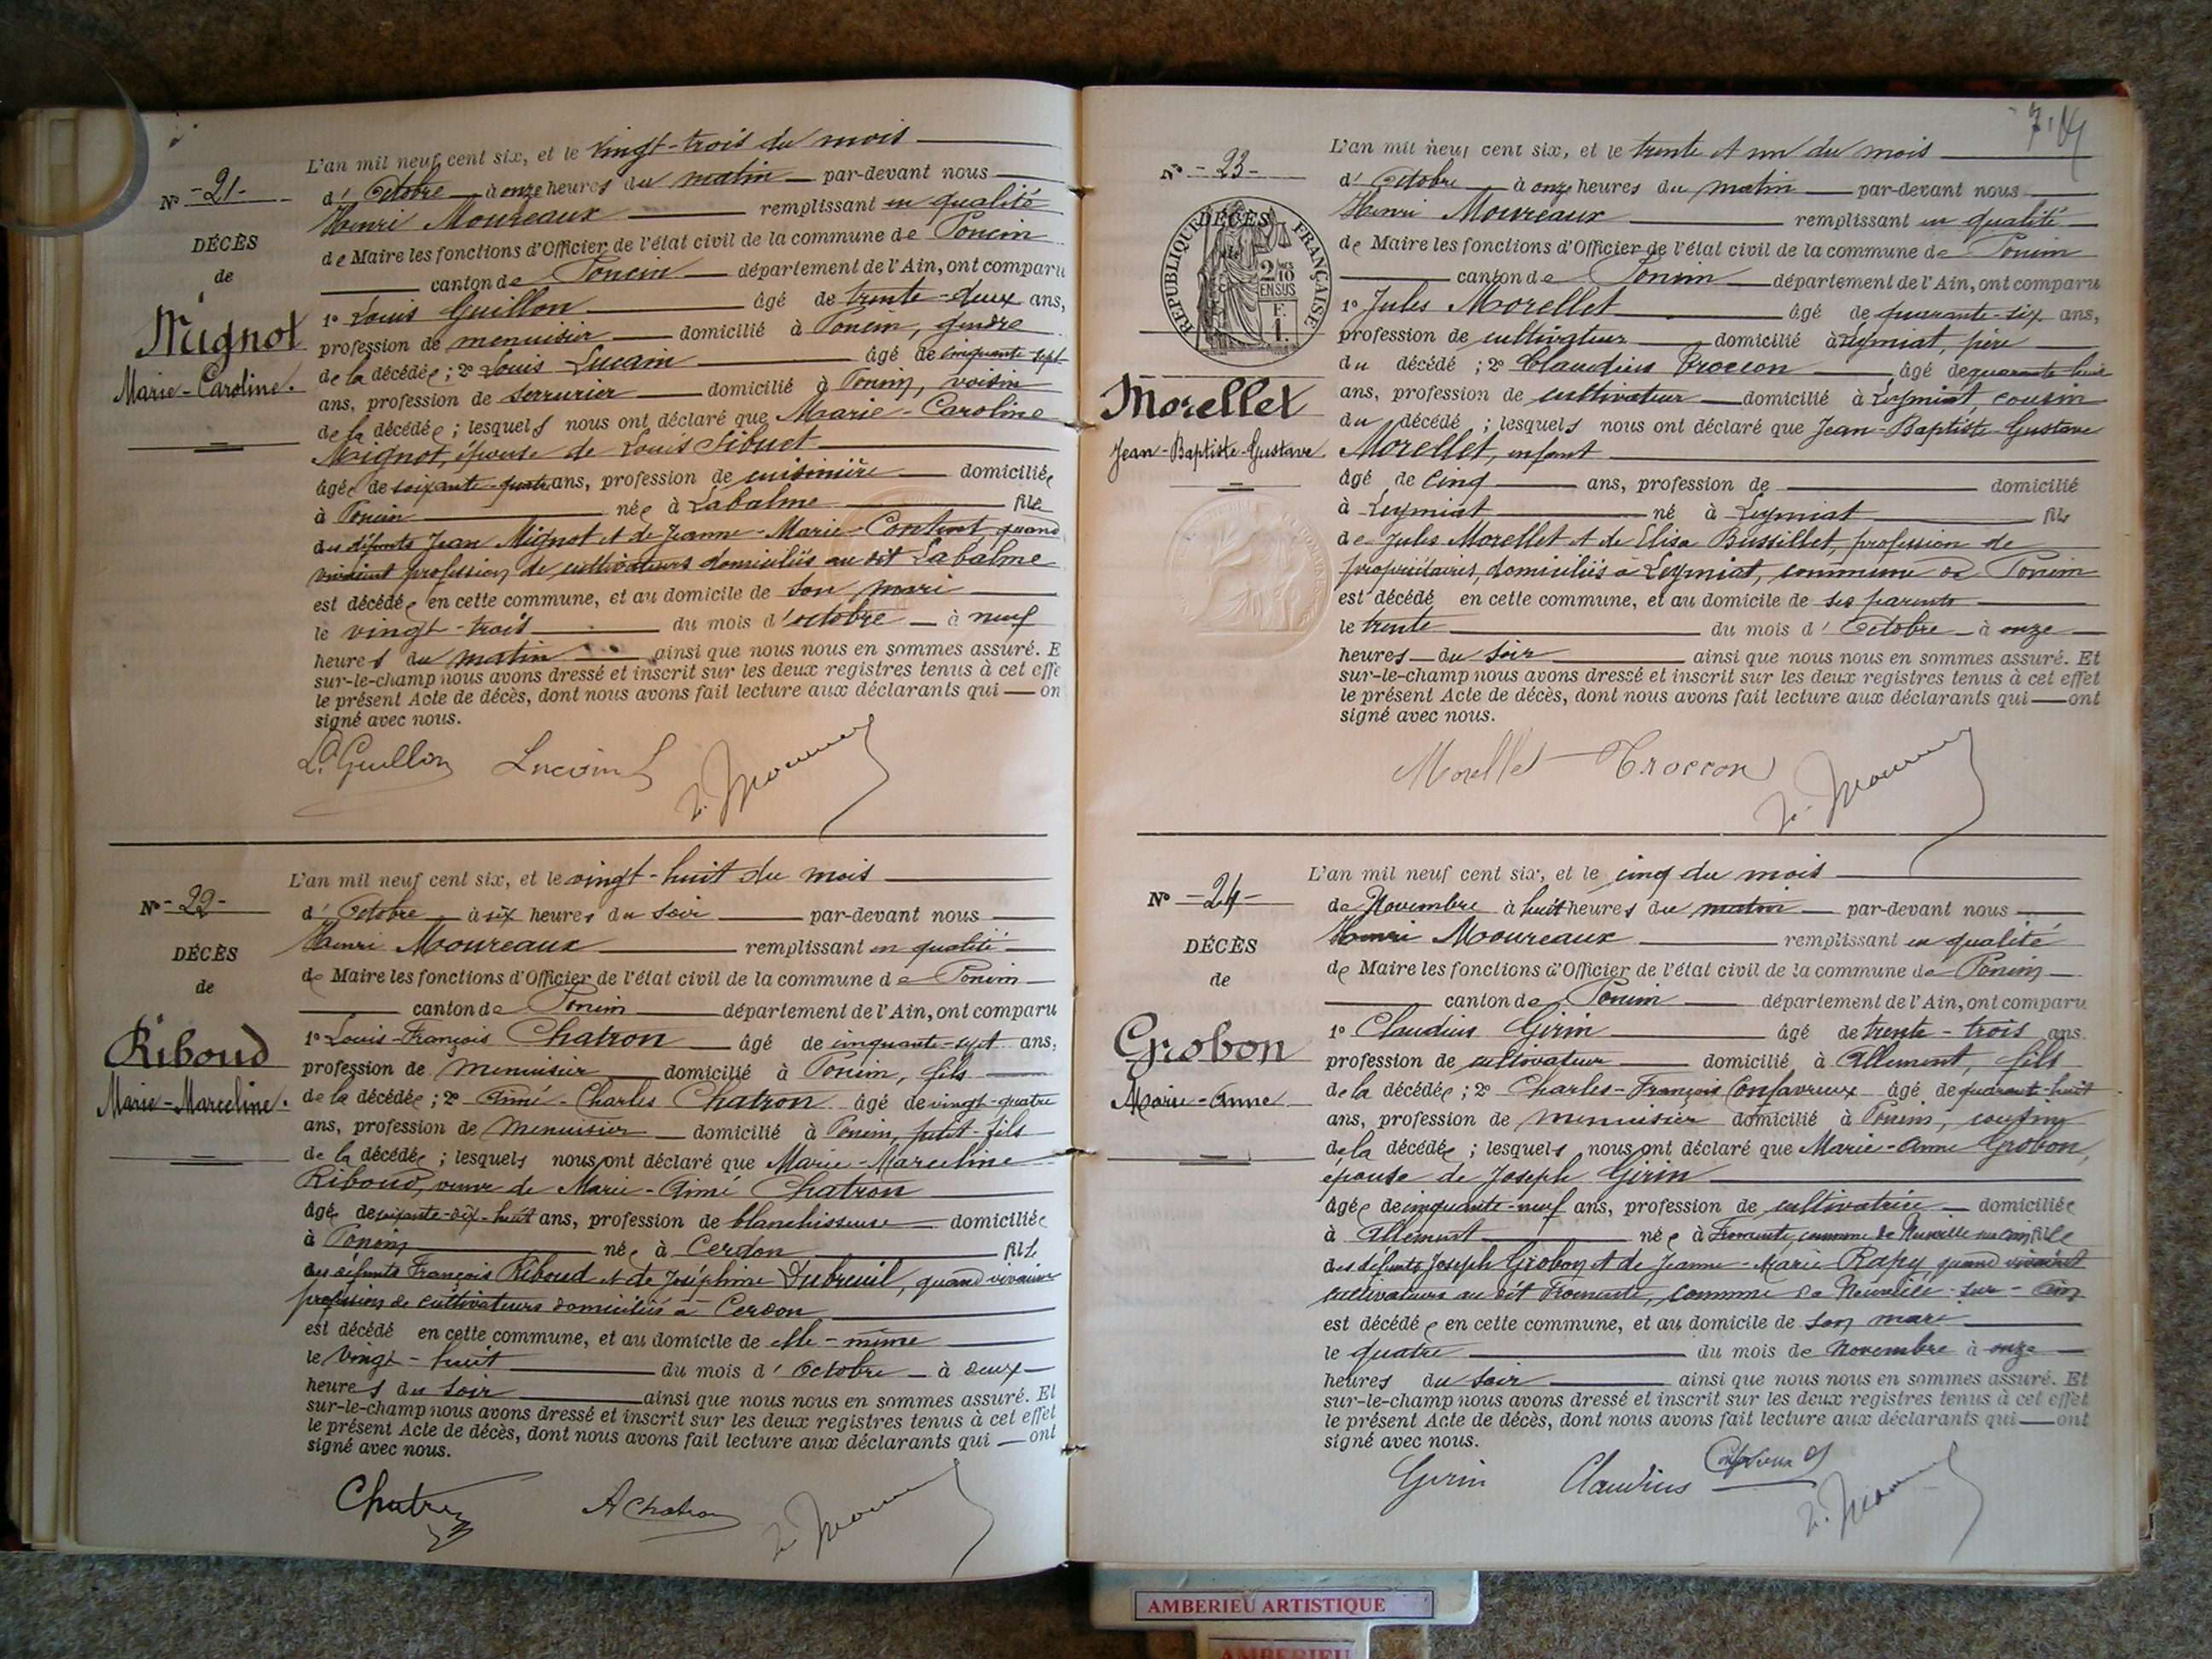 L'an mil neuf cent six, et le vingt-trois du mois
N° -21-
d' Octobre à onze heures du matin par-devant nous
Henri Moureaux remplissant en qualité
DÉCÈS
de Maire les fonctions d'Officier de l'état civil de la commune de Poncin
de
canton de Poncin département de l'Ain, ont comparu
1° Louis Guillon âgé de trente-deux ans,
Mignot
profession de menuisier domicilié à Poncin, gendre
Marie-Caroline.
de la décédée ; 2° Louis Lucain âgé de cinquante sept
ans, profession de serrurier domicilié à Poncin, voisin
de la décédée ; lesquels nous ont déclaré que Marie-Caroline
Mignot, épouse de Louis Sibuet
âgée de soixante-quatre ans, profession de cuisinière domiciliée
à Poncin née à Labalme fille
des défunts Jean Mignot et de Jeanne-Marie Content, quand
vivaient profession de cultivateurs domiciliés au dit Labalme
est décédée en cette commune, et au domicile de son mari
le vingt-trois du mois d'octobre à neuf
heures du matin ainsi que nous nous en sommes assuré. E
sur-le-champ nous avons dressé et inscrit sur les deux registres tenus à cet effe
le présent Acte de décès, dont nous avons fait lecture aux déclarants qui on
signé avec nous.
L. Guillon Lucain L H. Moureaux
L'an mil neuf cent six, et le vingt-huit du mois
N° -22-
d' Octobre à six heures du soir par-devant nous
Henri Moureaux remplissant en qualité
DÉCÈS
de Maire les fonctions d'Officier de l'état civil de la commune de Poncin
de
canton de Poncin département de l'Ain, ont comparu
1° Louis-François Chatron âgé de cinquante-sept ans,
Riboud
profession de menuisier domicilié à Poncin, fils
Marie-Marceline.
de la décédée ; 2° Aimé-Charles Chatron âgé de vingt-quatre
ans, profession de menuisier domicilié à Poncin, petit-fils
de la décédée ; lesquels nous ont déclaré que Marie-Marceline
Riboud, veuve de Marie-Aimé Chatron
âgée de soixante-dix-huit ans, profession de blanchisseuse domiciliée
à Poncin née à Cerdon fille
des défunts François Riboud et de Joséphine Dubreuil, quand vivaient
profession de cultivateurs domiciliés à Cerdon
est décédé en cette commune, et au domicile de elle-même
le vingt-huit du mois d' Octobre à deux
heures du soir ainsi que nous nous en sommes assuré. Et
sur-le-champ nous avons dressé et inscrit sur les deux registres tenus à cet effet
le présent Acte de décès, dont nous avons fait lecture aux déclarants qui ont
signé avec nous.
Chatron A Chatron H. Moureaux
L'an mil neuf cent six, et le trente et un du mois
N° -23-
d' Octobre à onze heures du matin par-devant nous
Henri Moureaux remplissant en qualité
DÉCÈS
RÉPUBLIQUE FRANÇAISE
2/10 EN SUS
F. 1.
de Maire les fonctions d'Officier de l'état civil de la commune de Poncin
canton de Poncin département de l'Ain, ont comparu
1° Jules Morellet âgé de quarante-six ans,
profession de cultivateur domicilié à Leymiat, père
du décédé ; 2° Claudius Troccon âgé de quarante huit
Morellet
ans, profession de cultivateur domicilié à Leymiat, cousin
du décédé ; lesquels nous ont déclaré que Jean-Baptiste Gustave
Jean-Baptiste-Gustave
Morellet, enfant
âgé de cinq ans, profession de domicilié
à Leymiat né à Leymiat fils
de Jules Morellet et de Elisa Bussillet, profession de
propriétaires, domiciliés à Leymiat, commune de Poncin
est décédé en cette commune, et au domicile de ses parents
le trente du mois d' Octobre à onze
heures du soir ainsi que nous nous en sommes assuré. Et
sur-le-champ nous avons dressé et inscrit sur les deux registres tenus à cet effet
le présent Acte de décès, dont nous avons fait lecture aux déclarants qui ont
signé avec nous.
Morellet Troccon H. Moureaux
L'an mil neuf cent six, et le cinq du mois
N° -24-
de Novembre à huit heures du matin par-devant nous
Henri Moureaux remplissant en qualité
DÉCÈS
de Maire les fonctions d'Officier de l'état civil de la commune de Poncin
de
canton de Poncin département de l'Ain, ont comparu
1° Claudius Girin âgé de trente-trois ans
Grobon
profession de cultivateur domicilié à Allement, fils
Marie-Anne
de la décédée ; 2° Charles-François Confavreux âgé de quarante-huit
ans, profession de menuisier domicilié à Poncin, cousin
de la décédée ; lesquels nous ont déclaré que Marie-Anne Grobon,
épouse de Joseph Girin
âgée de cinquante-neuf ans, profession de cultivatrice domiciliée
à Allement née à Fromente, commune de Neuville sur Ain fille
des défunts Joseph Grobon et de Jeanne-Marie Rapy, quand vivaient
cultivateurs au dit Fromente, commune de Neuville-sur-Ain
est décédée en cette commune, et au domicile de son mari
le quatre du mois de Novembre à onze
heures du soir ainsi que nous nous en sommes assuré. Et
sur-le-champ nous avons dressé et inscrit sur les deux registres tenus à cet effet
le présent Acte de décès, dont nous avons fait lecture aux déclarants qui ont
signé avec nous.
Girin Claudius Confavreux H. Moureaux
AMBERIEU ARTISTIQUE
AMBERIEU